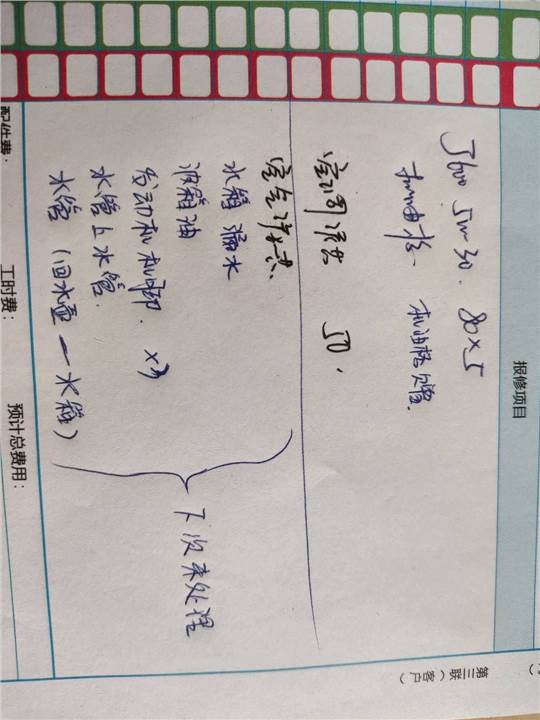 第三联（客户）
报修项目
J600 5W-30. 80×5
机油格、
空调滤芯 50.
空气滤芯.
水箱漏水
波箱油
发动机机脚. ×3
水管上水管.
水管（回水壶—水箱）
下次来处理
配件费： 工时费： 预计总费用：